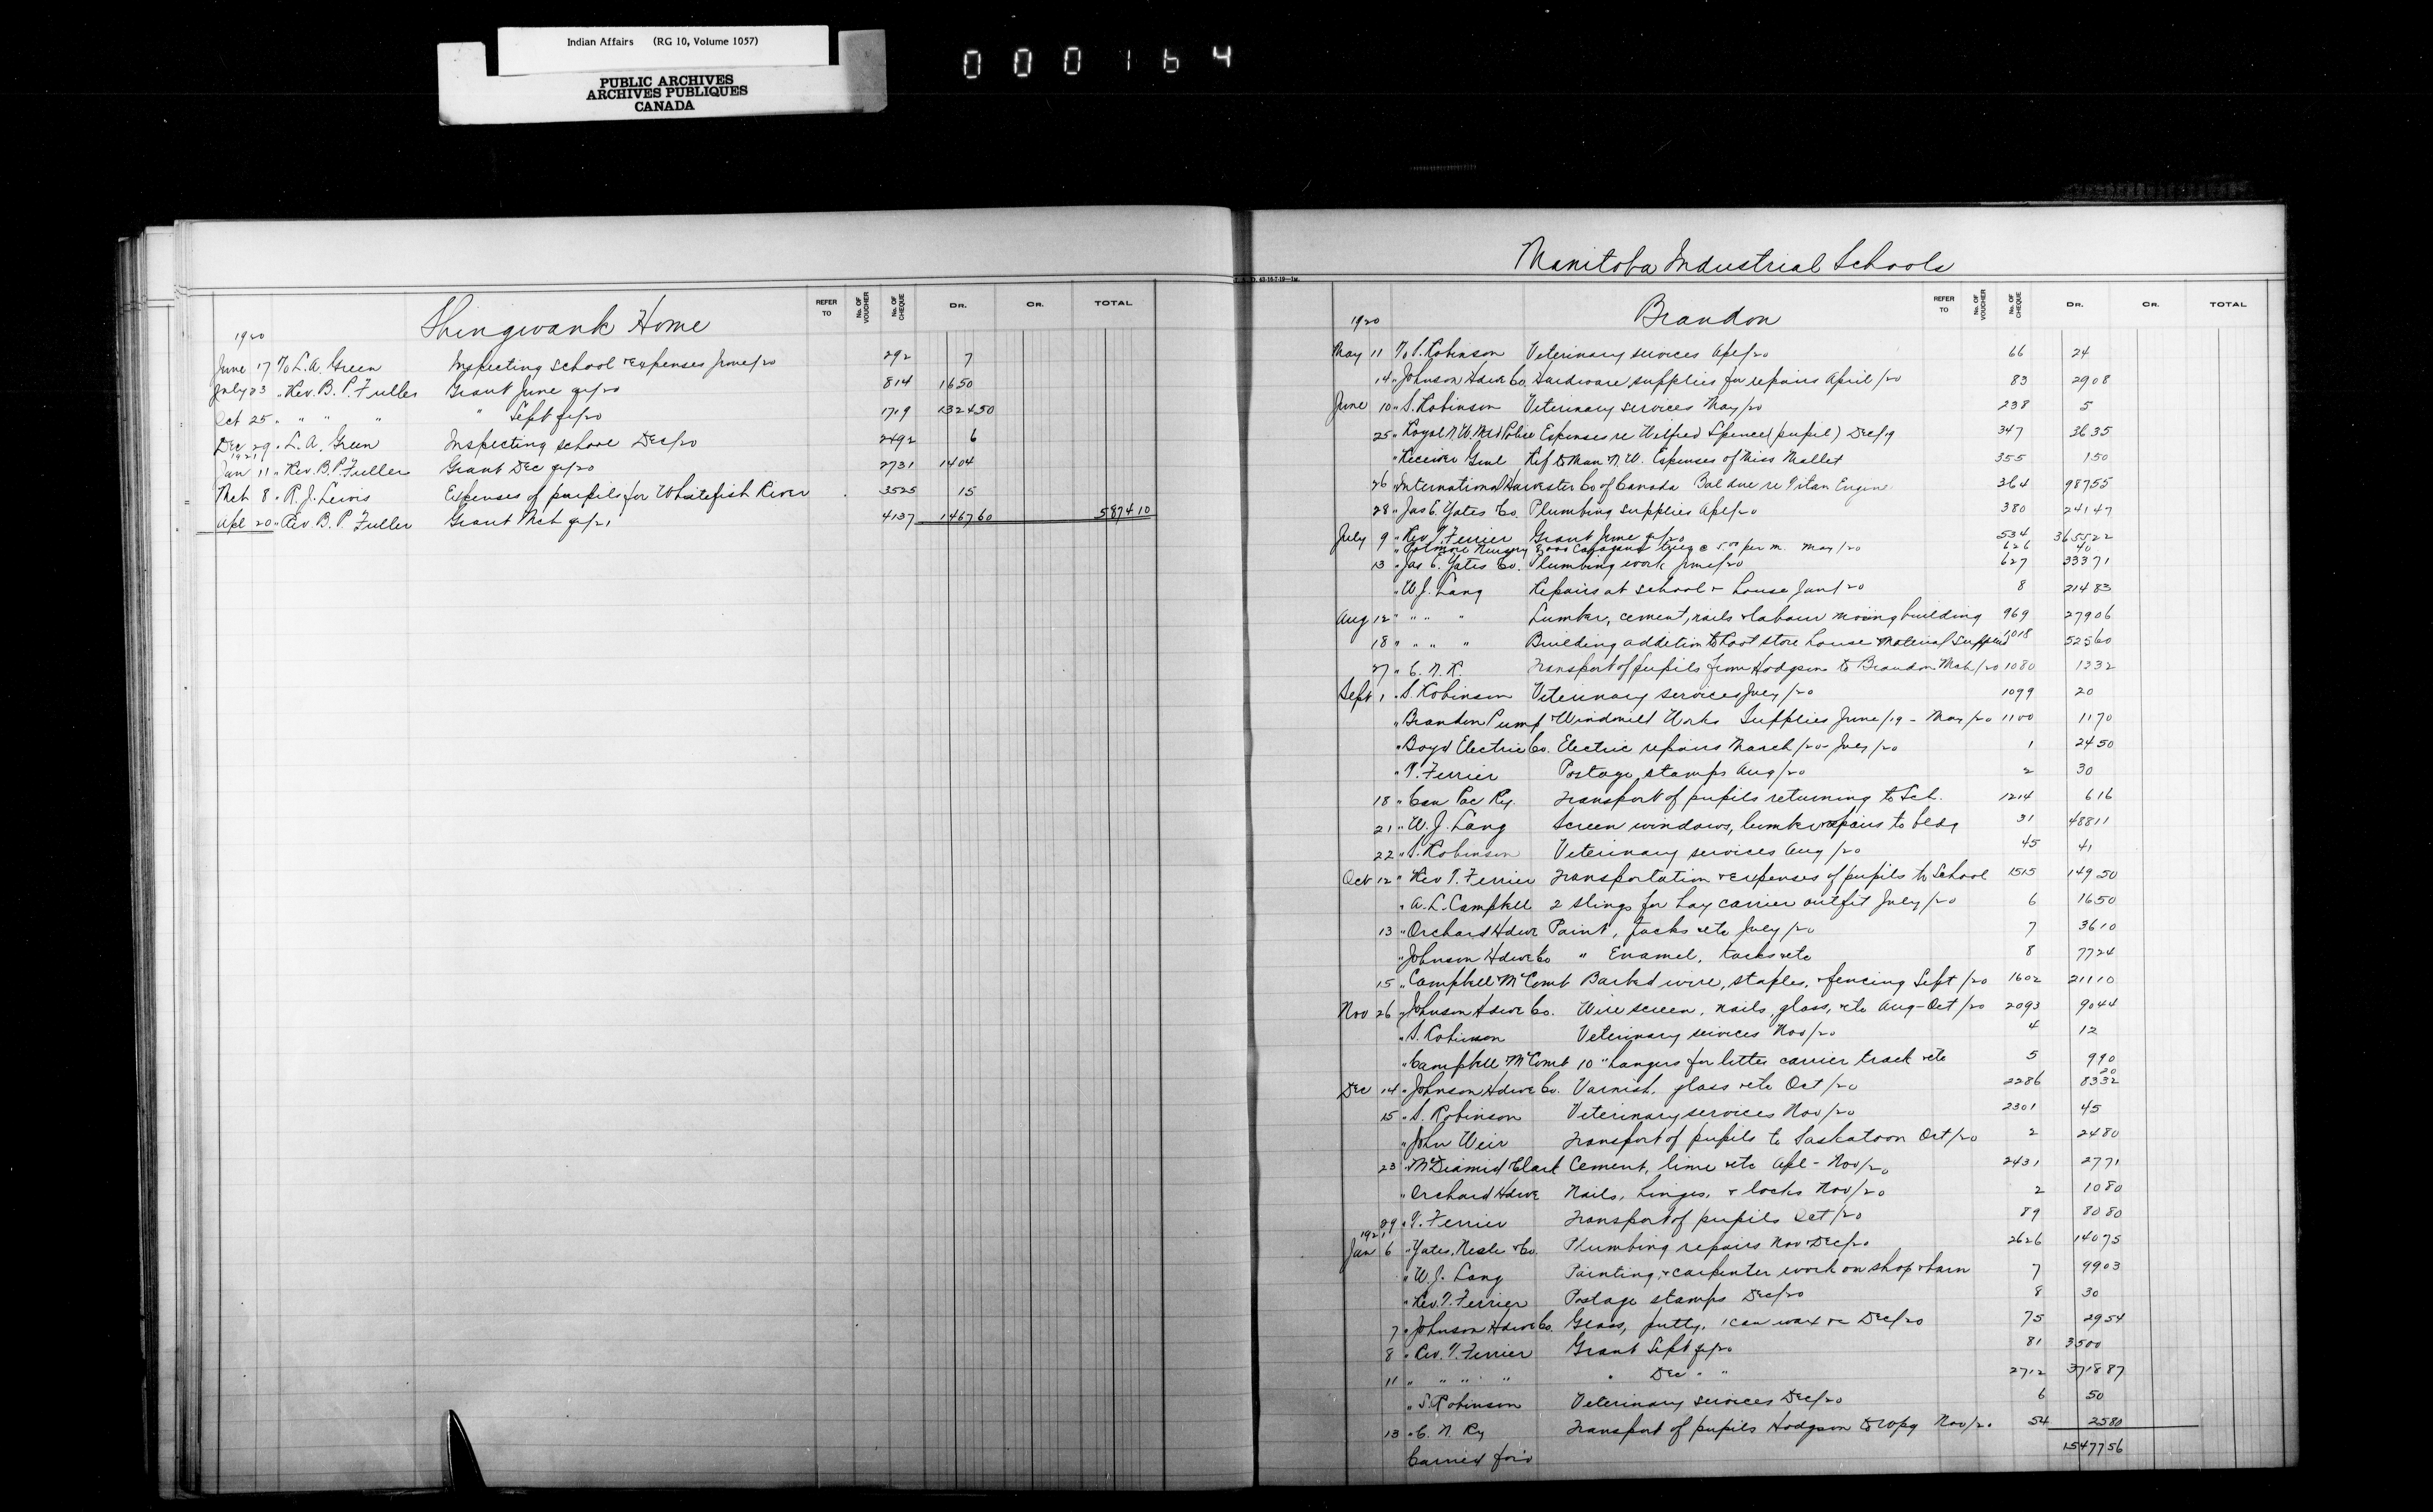 Indian Affairs (RG 10, Volume 1057)
PUBLIC ARCHIVES
ARCHIVES PUBLIQUES
CANADA
000164
Shingwauk Home
REFER TO No. OF VOUCHER No. OF CHEQUE DR. CR. TOTAL
1920
June 17 To L.A. Green Inspecting school & Expenses June/20 292 7
July 23 " Rev. B.P. Fuller Grant June qr/20 814 1650
Oct 25 " " " " " Sept qr/20 1719 1324 50
Dec 29 " L.A. Green Inspecting school Dec/20 2492 6
1921
Jan 11 " Rev. B.P. Fuller Grant Dec qr/20 2731 1404
Mch 8 " R.J. Lewis Expenses of pupils for Whitefish River 3525 15
Apl 20 " Rev B.P. Fuller Grant Mch qr/21 4137 1467 60 5874 10
Manitoba Industrial Schools
Brandon
REFER TO No. OF VOUCHER No. OF CHEQUE DR. CR. TOTAL
1920
May 11 To S. Robinson Veterinary services Apl/20 66 24
14 " Johnson Hdwe Co. Hardware supplies for repairs April/20 83 29 08
June 10 " S. Robinson Veterinary services May/20 238 5
25 " Royal N.W. Mtd Police Expenses re Wilfred Spence (pupil) Dec/19 347 36 35
" Receiver Genl Ref to Man N.W. Expenses of Miss Mallet 355 1 50
26 " International Harvester Co of Canada Bal due re Titan Engine 364 987 55
28 " Jas C. Yates Co. Plumbing supplies Apl/20 380 241 47
July 9 " Rev T. Ferrier Grant June qr/20 534 3655 22
" Nursery 8,000 Caragana trees @ 5.00 per m. May/20 626 40
13 " Jas C. Yates Co. Plumbing work June/20 627 333 71
" W.J. Lang Repairs at school & house Jan/20 8 214 83
Aug 12 " " " " Lumber, cement, nails & labour moving building 969 279 06
18 " " " " Building addition to Root store house & Material supplied 1018 525 60
27 " C.N.R. Transport of pupils from Hodgson to Brandon Mch/20 1080 12 32
Sept 1 " S. Robinson Veterinary services July/20 1099 20
" Brandon Pump & Windmill Works Supplies June/19 - May/20 1100 11 70
" Boyd Electric Co. Electric repairs March/20 - July/20 1 24 50
" T. Ferrier Postage stamps Aug/20 2 30
18 " Can Pac Ry. Transport of pupils returning to Sch. 1214 6 16
21 " W.J. Lang Screen windows, lumber & repairs to bldg 31 488 11
22 " S. Robinson Veterinary services Aug/20 45 41
Oct 12 " Rev T. Ferrier Transportation & expenses of pupils to School 1515 149 50
" A.L. Campbell 2 slings for hay carrier outfit July/20 6 16 50
13 " Orchard Hdwe Paint, tacks etc July/20 7 36 10
" Johnson Hdwe Co " Enamel, tacks etc 8 77 24
15 " Campbell & McComb Barbed wire, staples, & fencing Sept/20 1602 211 10
Nov 26 " Johnson Hdwe Co. Wire screen, nails, glass, etc Aug-Oct/20 2093 90 44
" S. Robinson Veterinary services Nov/20 4 12
" Campbell & McComb 10 " hangers for litter carrier track etc 5 9 90
20
Dec 14 " Johnson Hdwe Co. Varnish, glass etc Oct/20 2286 83 32
15 " S. Robinson Veterinary services Nov/20 2301 45
" John Weir Transport of pupils to Saskatoon Oct/20 2 24 80
23 " McDiarmid & Clark Cement, lime etc Apl - Nov/20 2431 27 71
" Orchard Hdwe Nails, hinges, & locks Nov/20 2 10 80
29 " T. Ferrier Transport of pupils Oct/20 89 80 80
1921
Jan 6 " Yates, Neale & Co. Plumbing repairs Nov & Dec/20 2626 140 75
" W.J. Lang Painting, & carpenter work on shop & barn 7 99 03
" Rev. T. Ferrier Postage stamps Dec/20 8 30
7 " Johnson Hdwe Co. Glass, putty, 1 can wax &c Dec/20 75 29 54
8 " Rev. T. Ferrier Grant Sept qr/20 81 3500
11 " " " " " Dec " " 2712 3718 87
" S. Robinson Veterinary services Dec/20 6 50
13 " C.N. Ry Transport of pupils Hodgson to Wpg Nov/20 54 25 80
Carried for'd 15477 56